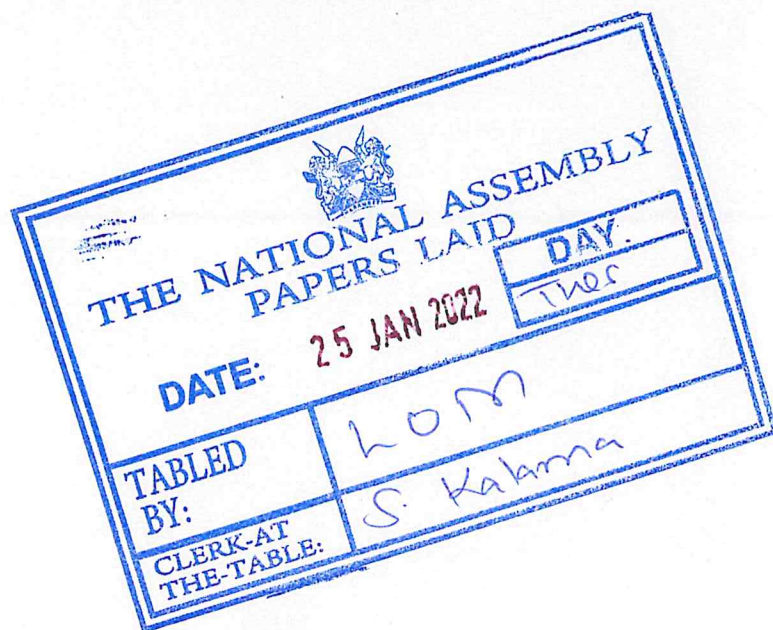 THE NATIONAL ASSEMBLY
PAPERS LAID
DATE: 25 JAN 2022
DAY.
Tues
TABLED BY:
LOM
CLERK-AT THE-TABLE:
S. Kalama